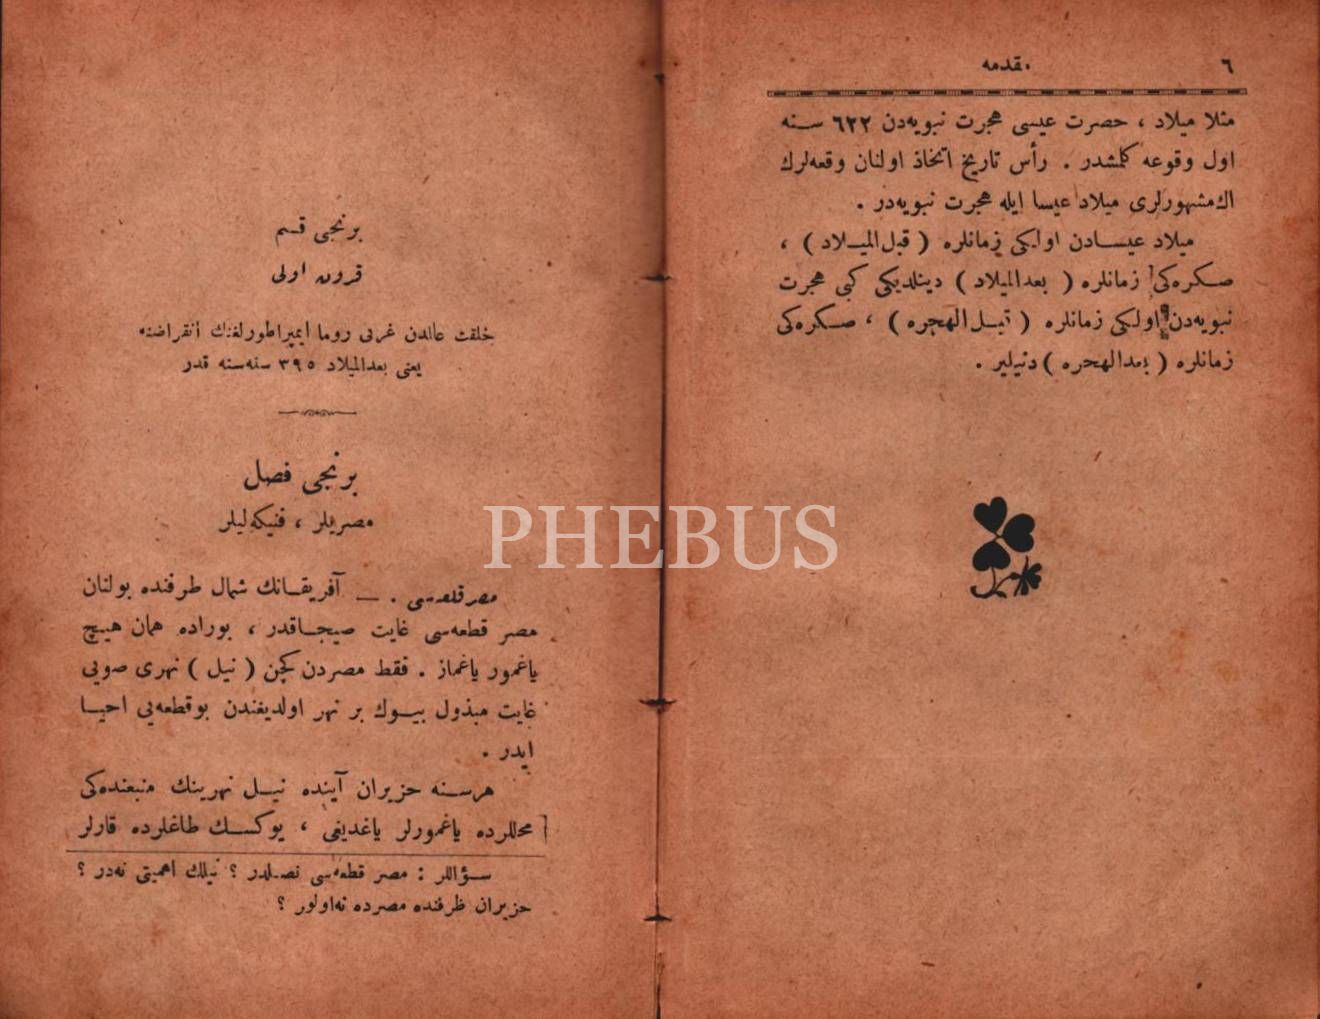 ٦ مقدمه
مثلا ميلاد ، حضرت عيسى هجرت نبويه‌دن ٦٢٢ سنه
اول وقوعه كلمشدر . رأس تاريخ اتخاذ اولنان وقعه‌لرك
اك مشهورلرى ميلاد عيسا ايله هجرت نبويه‌در .
ميلاد عيسادن اولكى زمانلره ( قبل الميلاد ) ،
صكره‌كى زمانلره ( بعد الميلاد ) دينلديكى كبى هجرت
نبويه‌دن اولكى زمانلره ( قبل الهجره ) ، صكره‌كى
زمانلره ( بعد الهجره ) دنيلير .
برنجى قسم
قرون اولى
خلقت عالمدن غربى روما ايمپراطورلغنك انقراضنه
يعنى بعد الميلاد ٣٩٥ سنه‌سنه قدر
برنجى فصل
مصريلر ، فنيكه‌ليلر
مصر قطعه‌سى . — آفريقانك شمال طرفنده بولنان
مصر قطعه‌سى غايت صيجاقدر ، بوراده همان هيچ
ياغمور ياغماز . فقط مصردن كچن ( نيل ) نهرى صويى
غايت مبذول بيوك بر نهر اولديغندن بو قطعه‌يى احيا
ايدر .
هر سنه حزيران آينده نيل نهرينك منبعنده‌كى
محللرده ياغمورلر ياغديغى ، يوكسك طاغلرده قارلر
سؤاللر : مصر قطعه‌سى نصلدر ؟ نيلك اهميتى نه‌در ؟
حزيران ظرفنده مصرده نه اولور ؟
PHEBUS